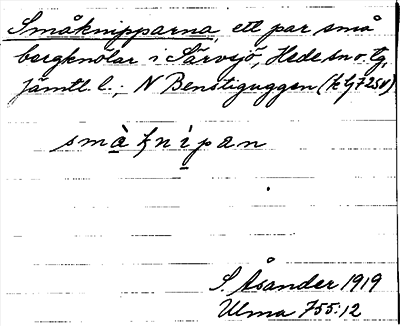 Småknipparna, ett par små
bergknölar i Särvsjö, Hede sn o. tg,
jämtl. l.; N Benstiguggen (k bl 7250)
smàknìpan
S. Åsander 1919
Ulma 755:12